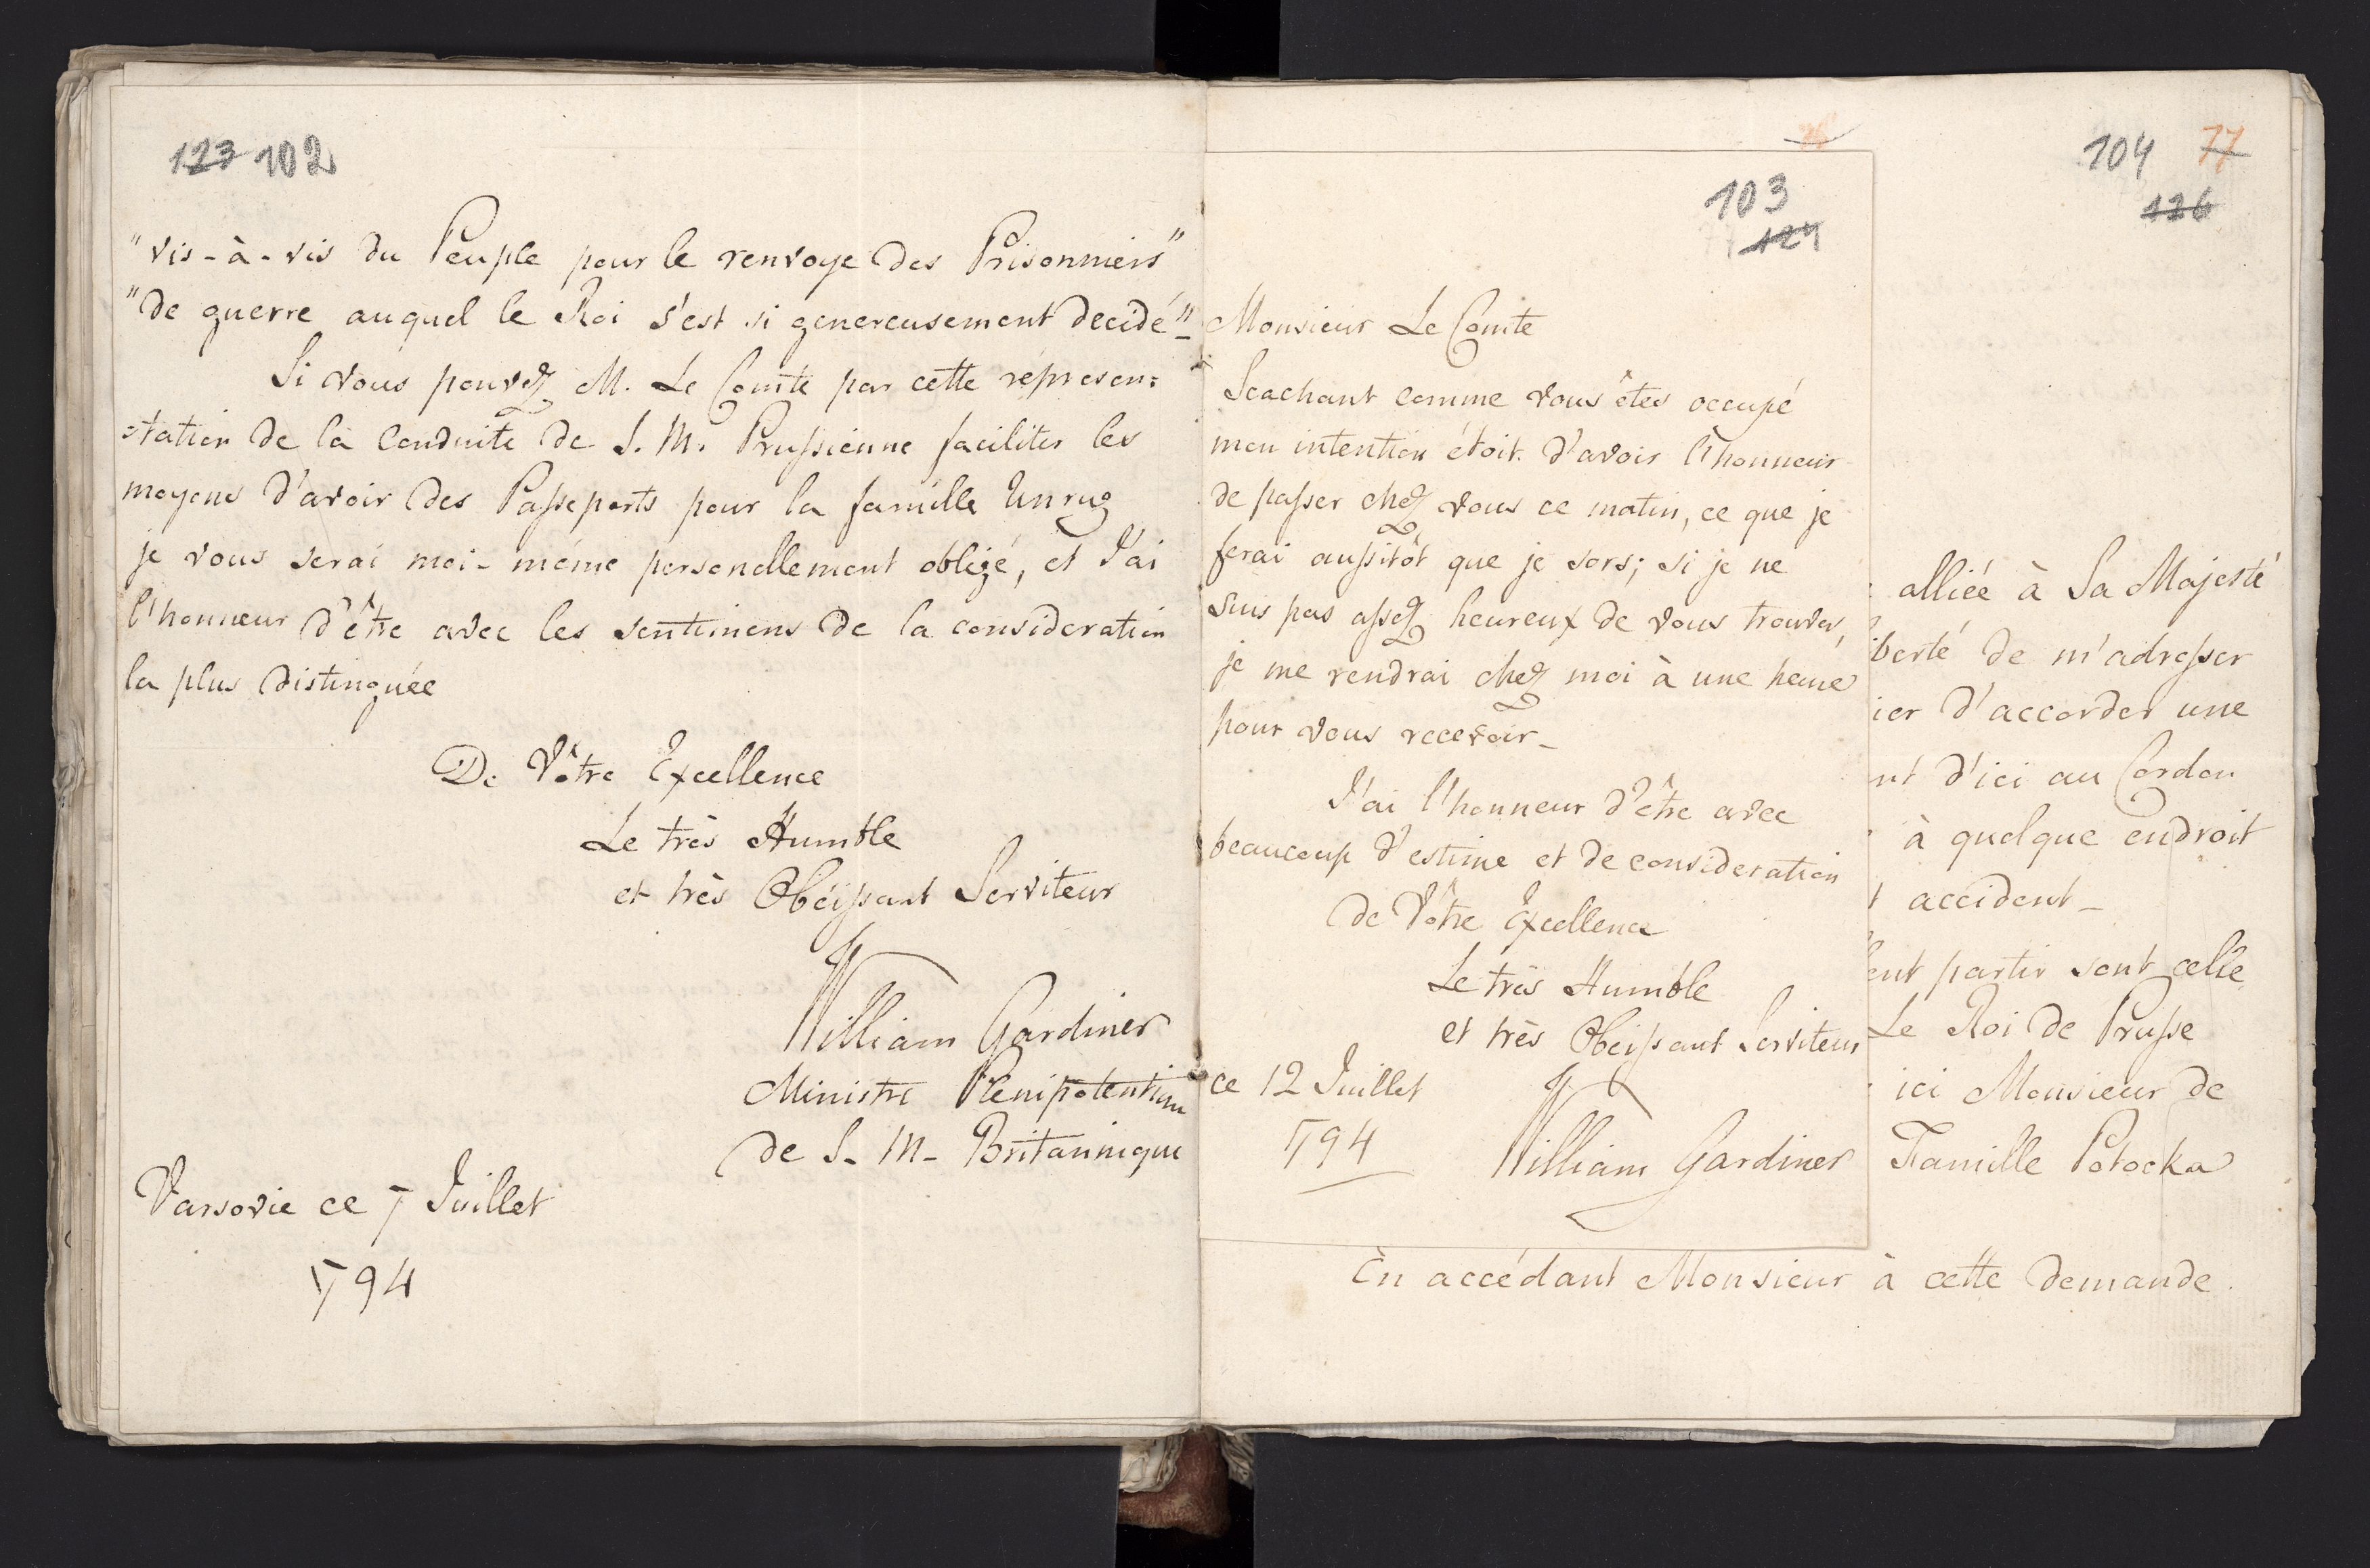 123 102
"vis-à-vis du Peuple pour le renvoye des Prisonniers"
"de guerre auquel le Roi s'est si genereusement decidé"_
Si vous pouvez M. Le Comte par cette represen=
=tation de la Conduite de S. M. Prussienne faciliter les
moyens d'avoir des Passeports pour la famille Unrug
je vous serai moi-même personellement obligé, et J'ai
l'honneur d'être avec les sentimens de la consideration
la plus distinguée
De Vôtre Excellence
Le très Humble
et très Obéissant Serviteur
William Gardiner
Ministre Plenipotentiare
de S. M. Britannique
Varsovie ce 7 Juillet
794
103
124
Monsieur Le Comte
Scachant comme vous êtes occupé
mon intention étoit d'avoir l'honneur
de passer chez vous ce matin, ce que je
ferai aussitôt que je sors; si je ne
suis pas assez heureux de vous trouver,
je me rendrai chez moi à une heure
pour vous recevoir_
J'ai l'honneur d'être avec
beaucoup d'estime et de consideration
De Vôtre Excellence
Le très Humble
et très Obeissant Serviteur
ce 12 Juillet
794
William Gardiner
104 77
126
alliée à Sa Majesté
berté de m'adresser
ier d'accorder une
nt d'ici au Cordon
à quelque endroit
t accident_
ent partir sont celle
Le Roi de Prusse
ici Monsieur de
Famille Potocka
En accédant Monsieur à cette demande.